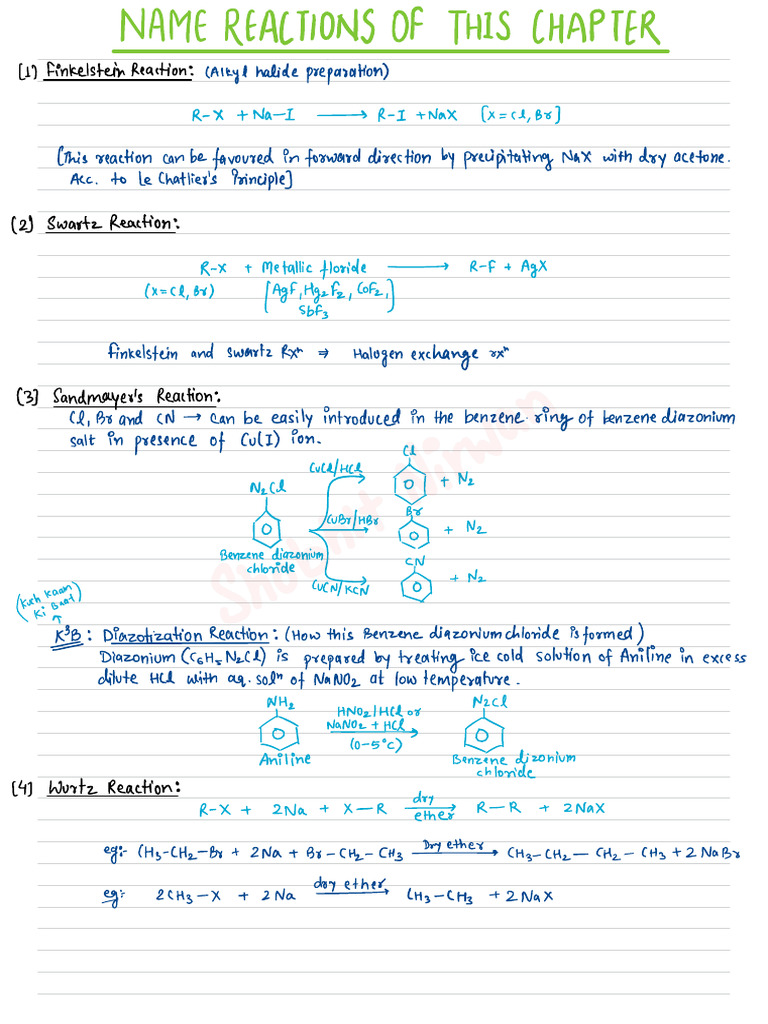 NAME REACTIONS OF THIS CHAPTER
[1] Finkelstein Reaction: (Alkyl halide preparation)
R-X + Na-I ⟶ R-I + NaX [X=Cl, Br]
[This reaction can be favoured in forward direction by precipitating NaX with dry acetone.
Acc. to Le Chatlier's Principle]
[2] Swartz Reaction:
R-X + Metallic floride ⟶ R-F + AgX
(X=Cl, Br) [AgF, Hg2F2, CoF2,
SbF3]
Finkelstein and Swartz Rxn ⇒ Halogen exchange rxn
[3] Sandmayer's Reaction:
Cl, Br and CN → can be easily introduced in the benzene ring of benzene diazonium
salt in presence of Cu(I) ion.
Cl
CuCl/HCl
+ N2
N2Cl
Br
CuBr/HBr
+ N2
Benzene diazonium
chloride
CN
+ N2
CuCN/KCN
(Kuch Kaam
Ki Baat)
K3B: Diazotization Reaction: (How this Benzene diazonium chloride is formed)
Diazonium (C6H5N2Cl) is prepared by treating ice cold solution of Aniline in excess
dilute HCl with aq. soln of NaNO2 at low temperature.
NH2 HNO2/HCl or N2Cl
NaNO2 + HCl
(0-5°C)
Aniline Benzene dizonium
chloride
[4] Wurtz Reaction:
R-X + 2Na + X-R dry ether ⟶ R-R + 2NaX
eg:- CH3-CH2-Br + 2Na + Br-CH2-CH3 Dry ether ⟶ CH3-CH2-CH2-CH3 + 2NaBr
eg: 2CH3-X + 2Na dry ether ⟶ CH3-CH3 + 2NaX